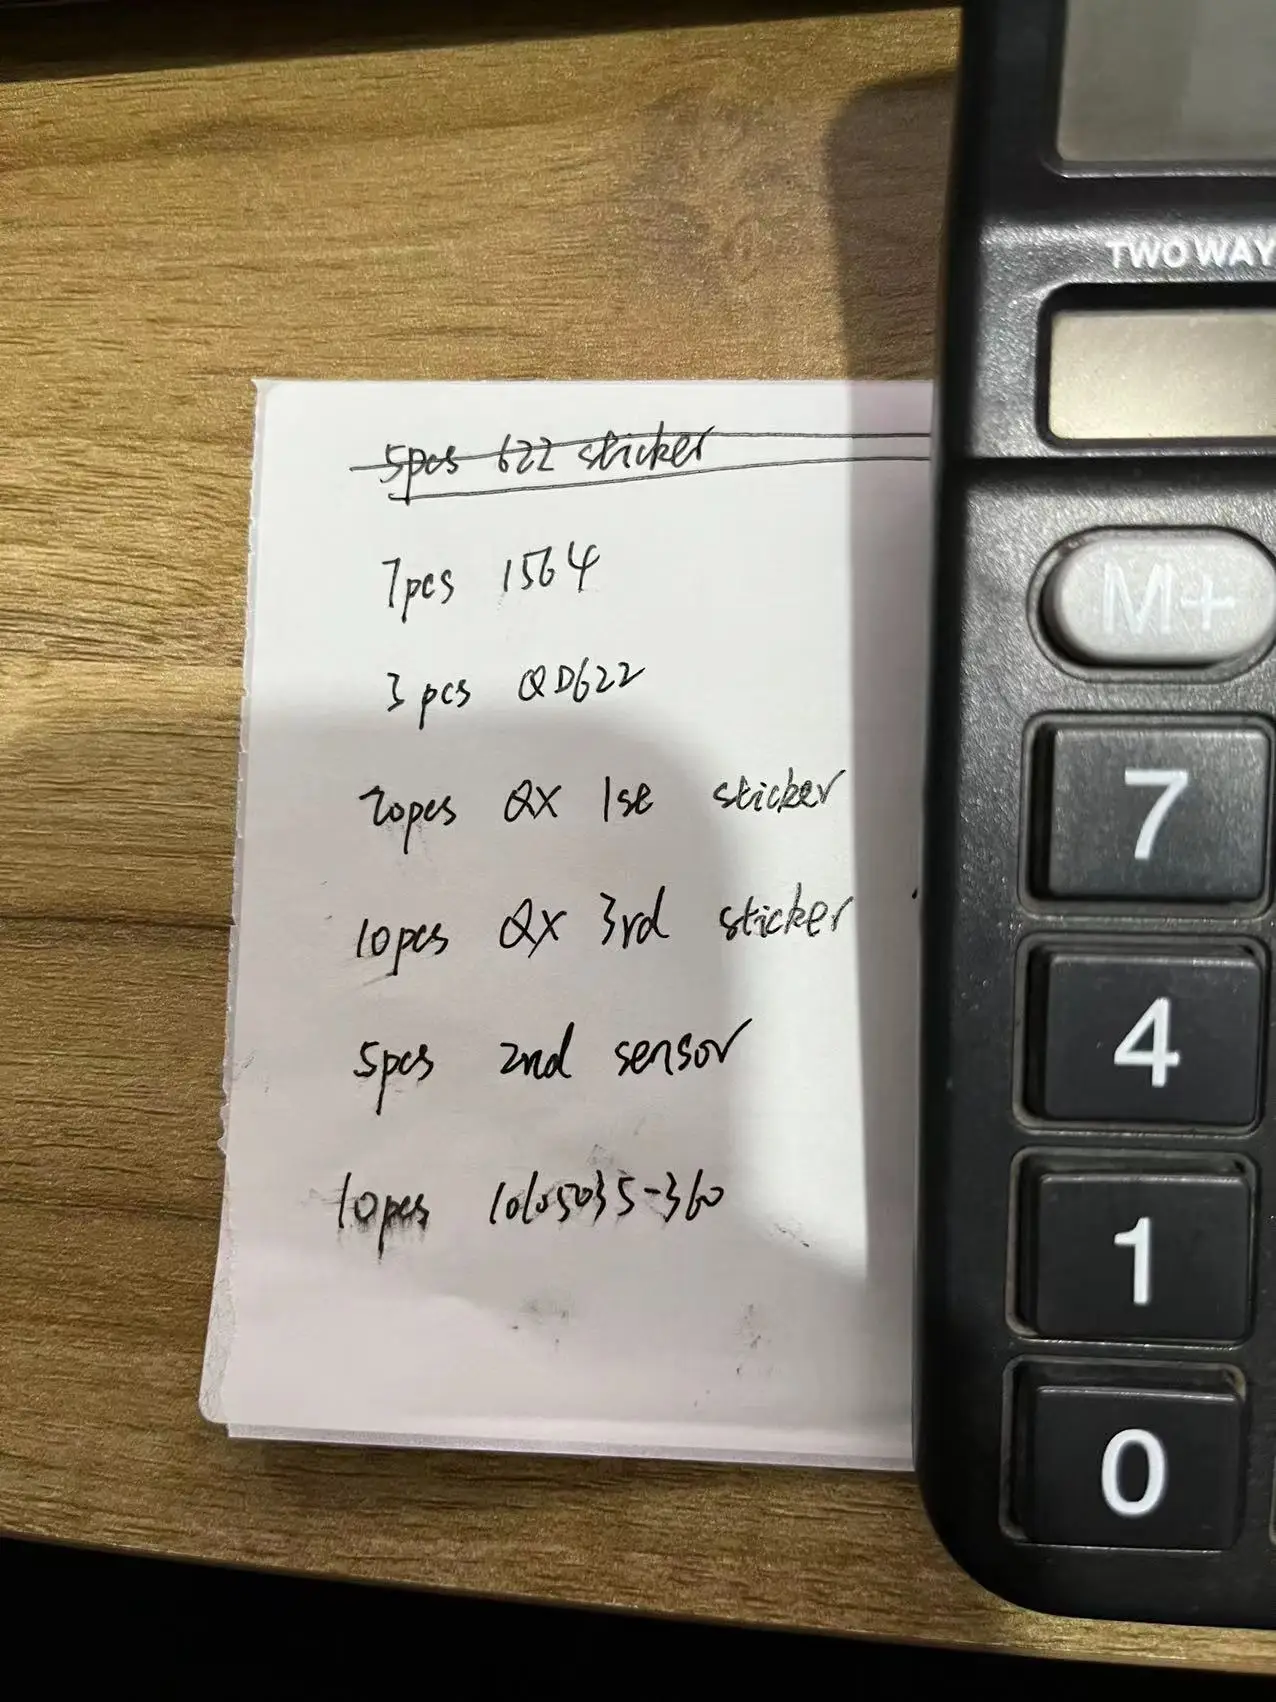 5pcs 622 sticker
7pcs 1564
3 pcs QD622
20pcs QX 1st sticker
10pcs QX 3rd sticker
5pcs 2nd sensor
10pcs 10105035-360
TWO WAY
M+
7
4
1
0